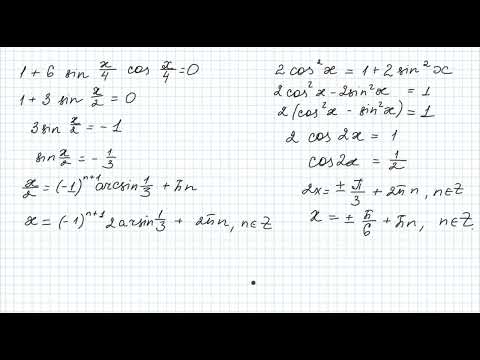 1 + 6 sin x/4 cos x/4 = 0
1 + 3 sin x/2 = 0
3 sin x/2 = - 1
sin x/2 = - 1/3
x/2 = (-1)^(n+1) arcsin 1/3 + πn
x = (-1)^(n+1) 2 arsin 1/3 + 2πn, n∈Z
2 cos²x = 1 + 2 sin²x
2 cos²x - 2sin²x = 1
2 (cos²x - sin²x) = 1
2 cos 2x = 1
cos 2x = 1/2
2x = ± π/3 + 2πn, n∈Z
x = ± π/6 + πn, n∈Z